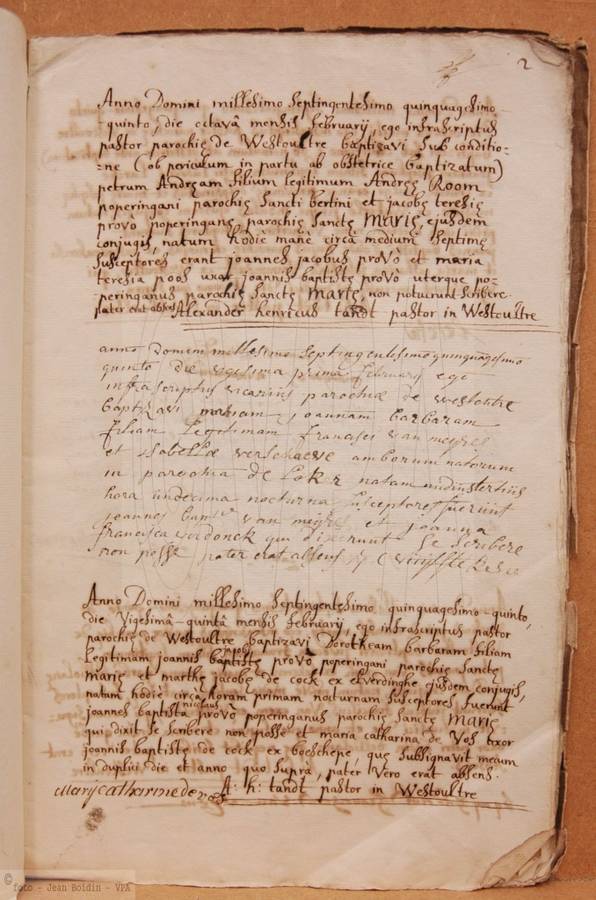 2
Anno Domini millesimo septingentesimo quinquagesimo
quinto, die octavâ mensis february, ego infrascriptus
pastor parochię de Westoultre baptizavi sub conditio=
=ne (ob periculum in partu ab obstetrice baptizatum)
petrum Andręam filium legitimum Andręę Room
poperingani parochię sancti bertini et jacobę teresię
provò poperinganę parochię sanctę Marię, ejusdem
conjugis, natum hodiè manè circà medium septimę
susceptores erant joannes jacobus provò et maria
teresia poos uxor joannis baptistę provò uterque po=
peringanus parochię sanctę Marię, non potuerunt scribere.
pater erat absens Alexander henricus tandt pastor in Westoultre
anno domini millesimo septingentesimo quinquagesimo
quinto die vigesima prima february ego
infrascriptus vicarius parochiæ de westoutre
baptizavi mariam joannam barbaram
filiam legitimam francisci van
et isabellæ verschaeve amborum natorum
in parochia de Loker natam
hora undecima nocturna susceptores fuerunt
joannes bapt van et joanna
francisca verdonck qui dixerunt se scribere
non posse pater erat absens
Anno Domini millesimo septingentesimo quinquagesimo-quinto,
die Vigesimâ-quintâ mensis february, ego infrascriptus pastor
parochię de Westoultre baptizavi Dorotheam barbaram filiam
legitimam joannis baptistę provò poperingani parochię sanctę
marię et marthę jacobę de cock ex elverdinghe ejusdem conjugis,
natam hodiè circa horam primam nocturnam susceptores fuerunt
joannes baptista nicolaus provò poperinganus parochię sanctę Marię
qui dixit se scribere non posse et maria catharina de Vos uxor
joannis baptistę de cock ex boeschepe quę subsignavit mecum
in duplui die et anno quo suprà, patér vero erat absens.
A: h: tandt pastor in Westoultre
Marÿ catharine de vos
© foto - Jean Boidin - VPA